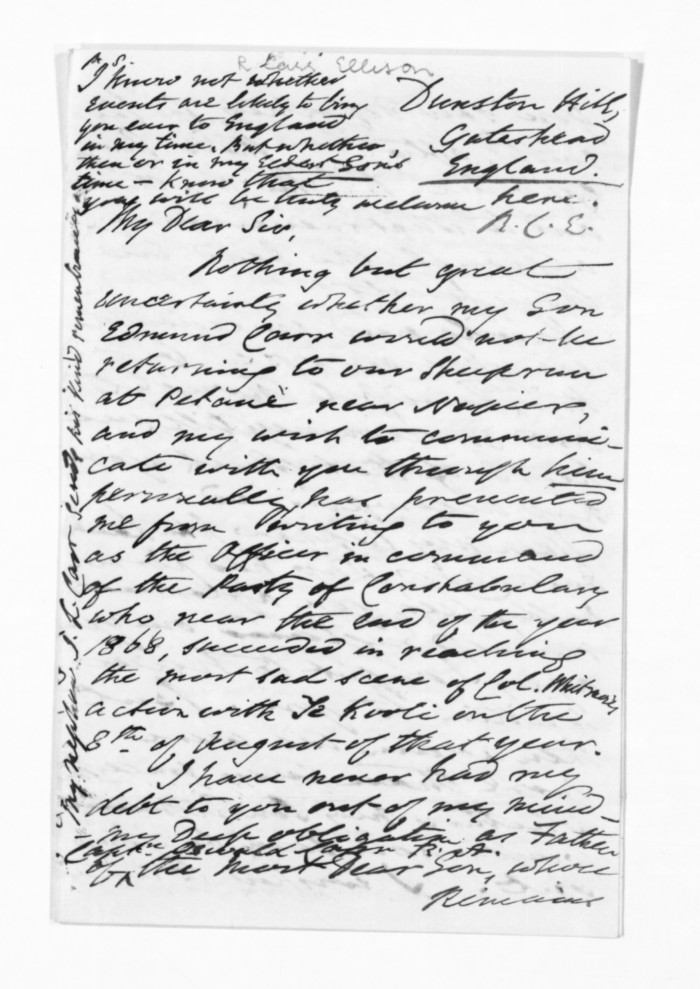 R. Carr Ellison
P.S.
I know not whether
events are likely to bring
you ever to England
in my time. But whether,
then or in my Eldest Son's
time – know that
you will be truly welcome here.
R. C. E.
Dunston Hill,
Gateshead
England.
My Dear Sir,
Nothing but great
uncertainty whether my Son
Edmund Carr would not be
returning to our Sheep run
at Petane near Napier,
and my wish to communi-
cate with you through him
personally, has prevented
me from writing to you
as the Officer in command
of the Party of Constabulary
who near the end of the year
1868, succeeded in reaching
the most sad scene of Col. Whitmore's
action with Te Kooti on the
8th of August of that year.
I have never had my
debt to you out of my mind –
my Deep obligation as Father
Captn Oswald Carr R.A.
of the most Dear Son, whose
Remains
My nephew J. L. Carr sends his kind remembrances